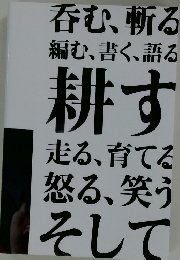 呑む、斬る
編む、書く、語る
耕す
走る、育てる
怒る、笑う
そして